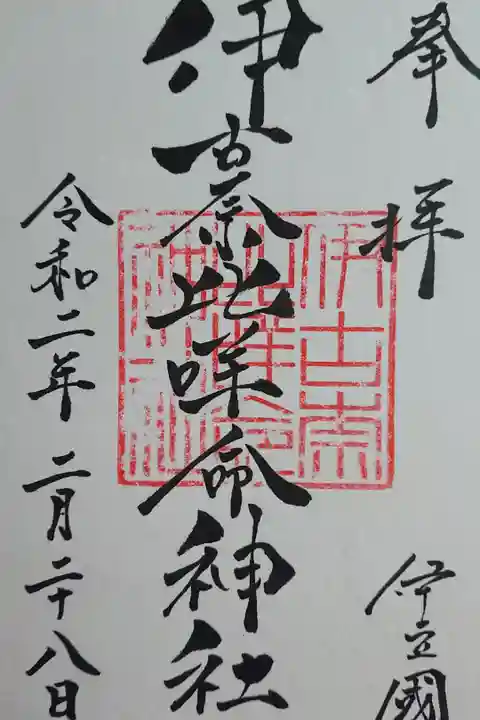 奉拝
伊豆國
伊古奈比咩命神社
令和二年 二月二十八日
伊古奈